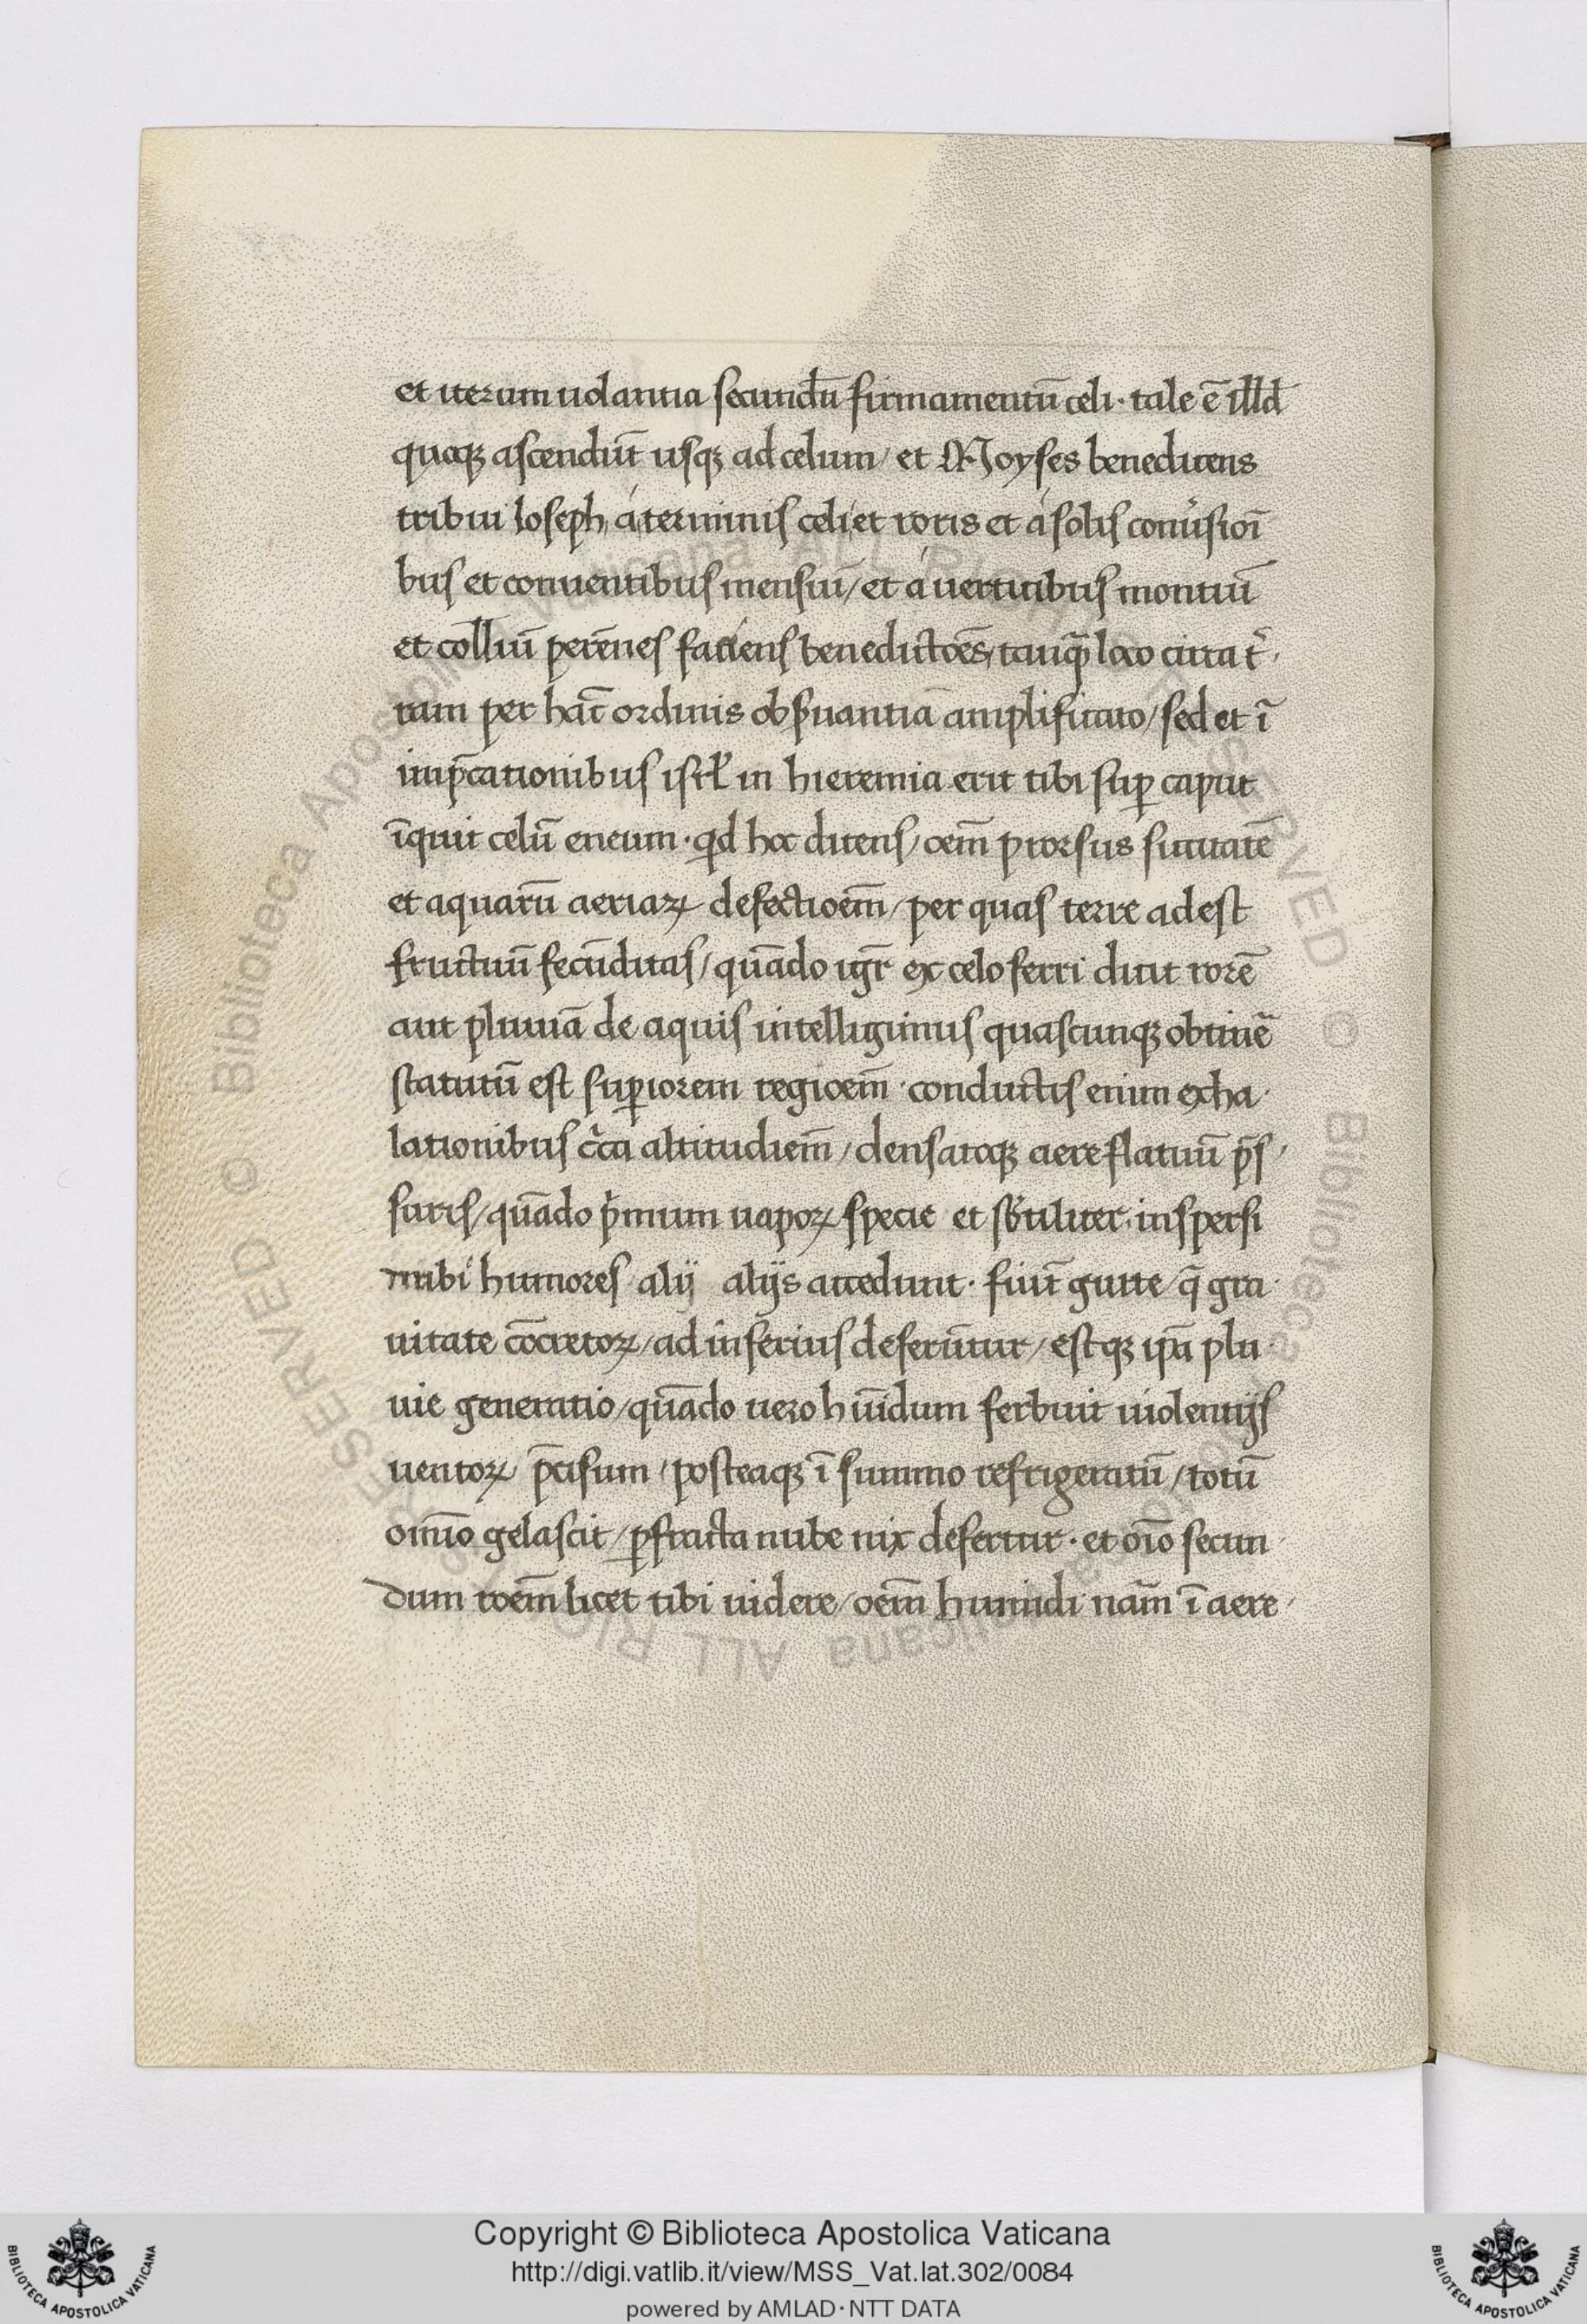 et iterum uolantia secundū firmamentū celi · tale ē illd
quoqꝫ ascendūt usqꝫ ad celum / et Moyses benedicens
tribui Ioseph, á terminis celi et roris et á solis conu̓sioī
bus et conuentibus mensiū / et á uerticibus montiū
et colliū perēnes faciens benedictōēs, tanꝙ̄ loco circa t̓
ram per hāc ordinis obẜuantiā amplificato / sed et ī
imp̄cationibus isrl̓ in hieremia erit tibi suꝑ caput
īquit celū eneum · qd hoc dicens / oēm prorsus siccitatē
et aquarū aeriaꝝ defectioēm / per quas terre adest
fructuū fecūditas / quādo igr̄ ex celo ferri dicit rorē
aut pluuiā de aquis intelligimus quascunqꝫ obtinē
statutū est suꝑiorem regioēm · conductis enim exha
lationibus c̄ca altitudiēm / densatoqꝫ aere flatuū p̄s
suris / quādo p̓mum uapoꝝ specie et sb̓tiliter inspersi
nubi humores alij alijs accedunt · fiūt gutte / q̄ gra
uitate cōcretoꝝ / ad inferius deferūtur / estqꝫ ip̄a plu
uie generatio / quādo uero hūidum ferbuit uiolentijs
uentoꝝ p̄cisum / posteaqꝫ ī summo refrigeratū / totū
omīo gelascit / ꝑfracta nube nix defertur · et oīo secun
dum roēm licet tibi uidere / oēm humidi nām̄ ī aere
© Biblioteca Apostolica Vaticana ALL RIGHTS RESERVED © Biblioteca Apostolica Vaticana ALL RIGHTS RESERVED
Copyright © Biblioteca Apostolica Vaticana
http://digi.vatlib.it/view/MSS_Vat.lat.302/0084
powered by AMLAD · NTT DATA
BIBLIOTECA APOSTOLICA VATICANA
BIBLIOTECA APOSTOLICA VATICANA